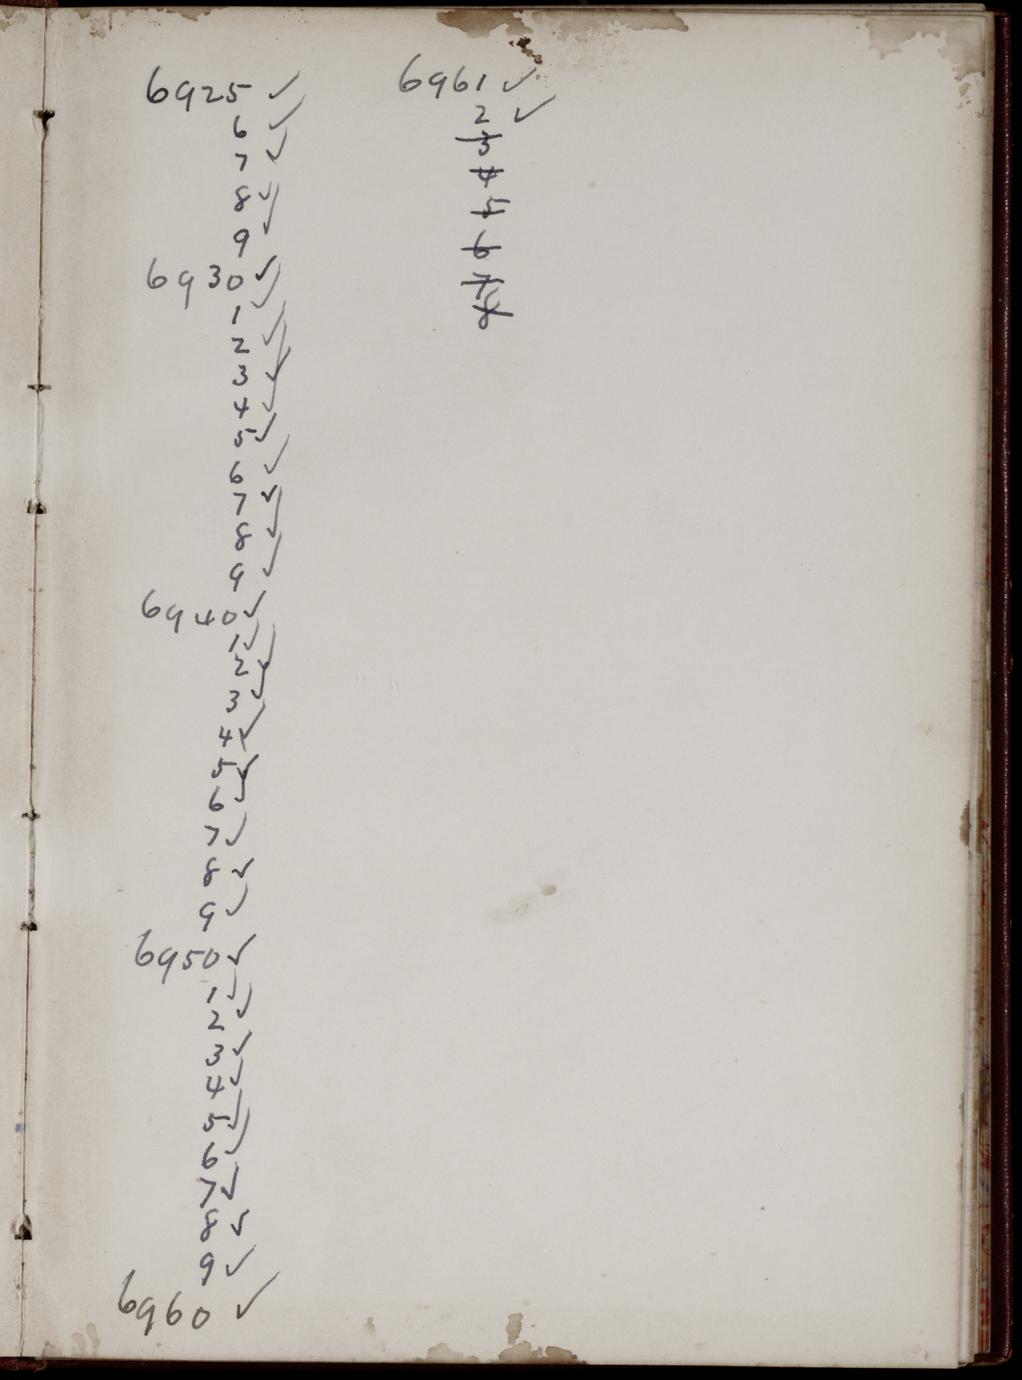 6925 ✓
6 ✓
7 ✓
8 ✓
9 ✓
6930 ✓
1 ✓
2 ✓
3 ✓
4 ✓
5 ✓
6 ✓
7 ✓
8 ✓
9 ✓
6940 ✓
1 ✓
2 ✓
3 ✓
4 ✓
5 ✓
6 ✓
7 ✓
8 ✓
9 ✓
6950 ✓
1 ✓
2 ✓
3 ✓
4 ✓
5 ✓
6 ✓
7 ✓
8 ✓
9 ✓
6960 ✓
6961 ✓
2 ✓
3
4
5
6
7
8